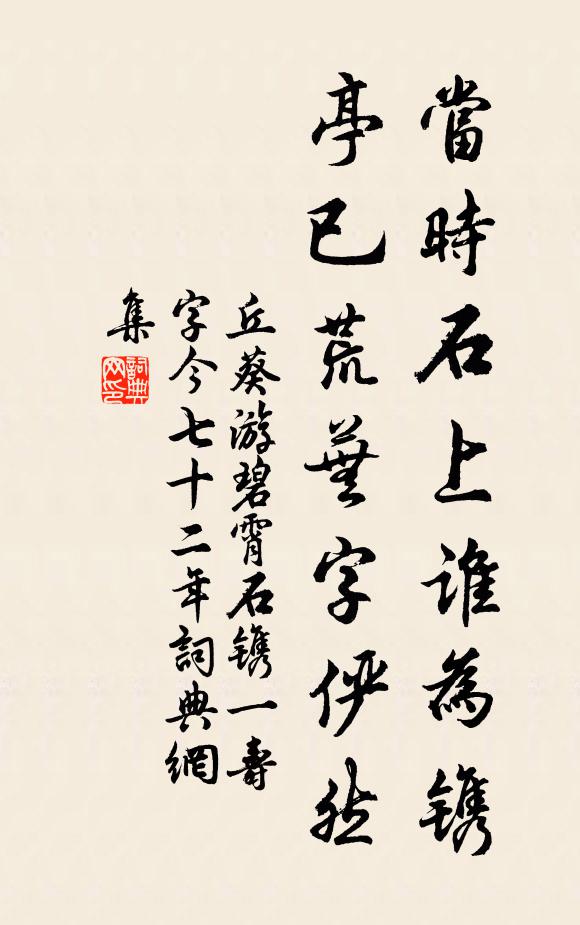 當時石上誰為鐫
亭已荒蕪字儼然
丘葵游碧霄石鐫一壽
字今七十二年詞典網
集
詞典网印